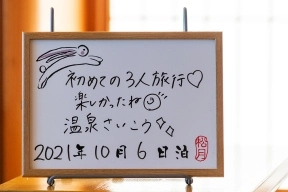 初めての3人旅行♡
楽しかったね☺
温泉さいこう✧✧
2021年10月6日泊
松月